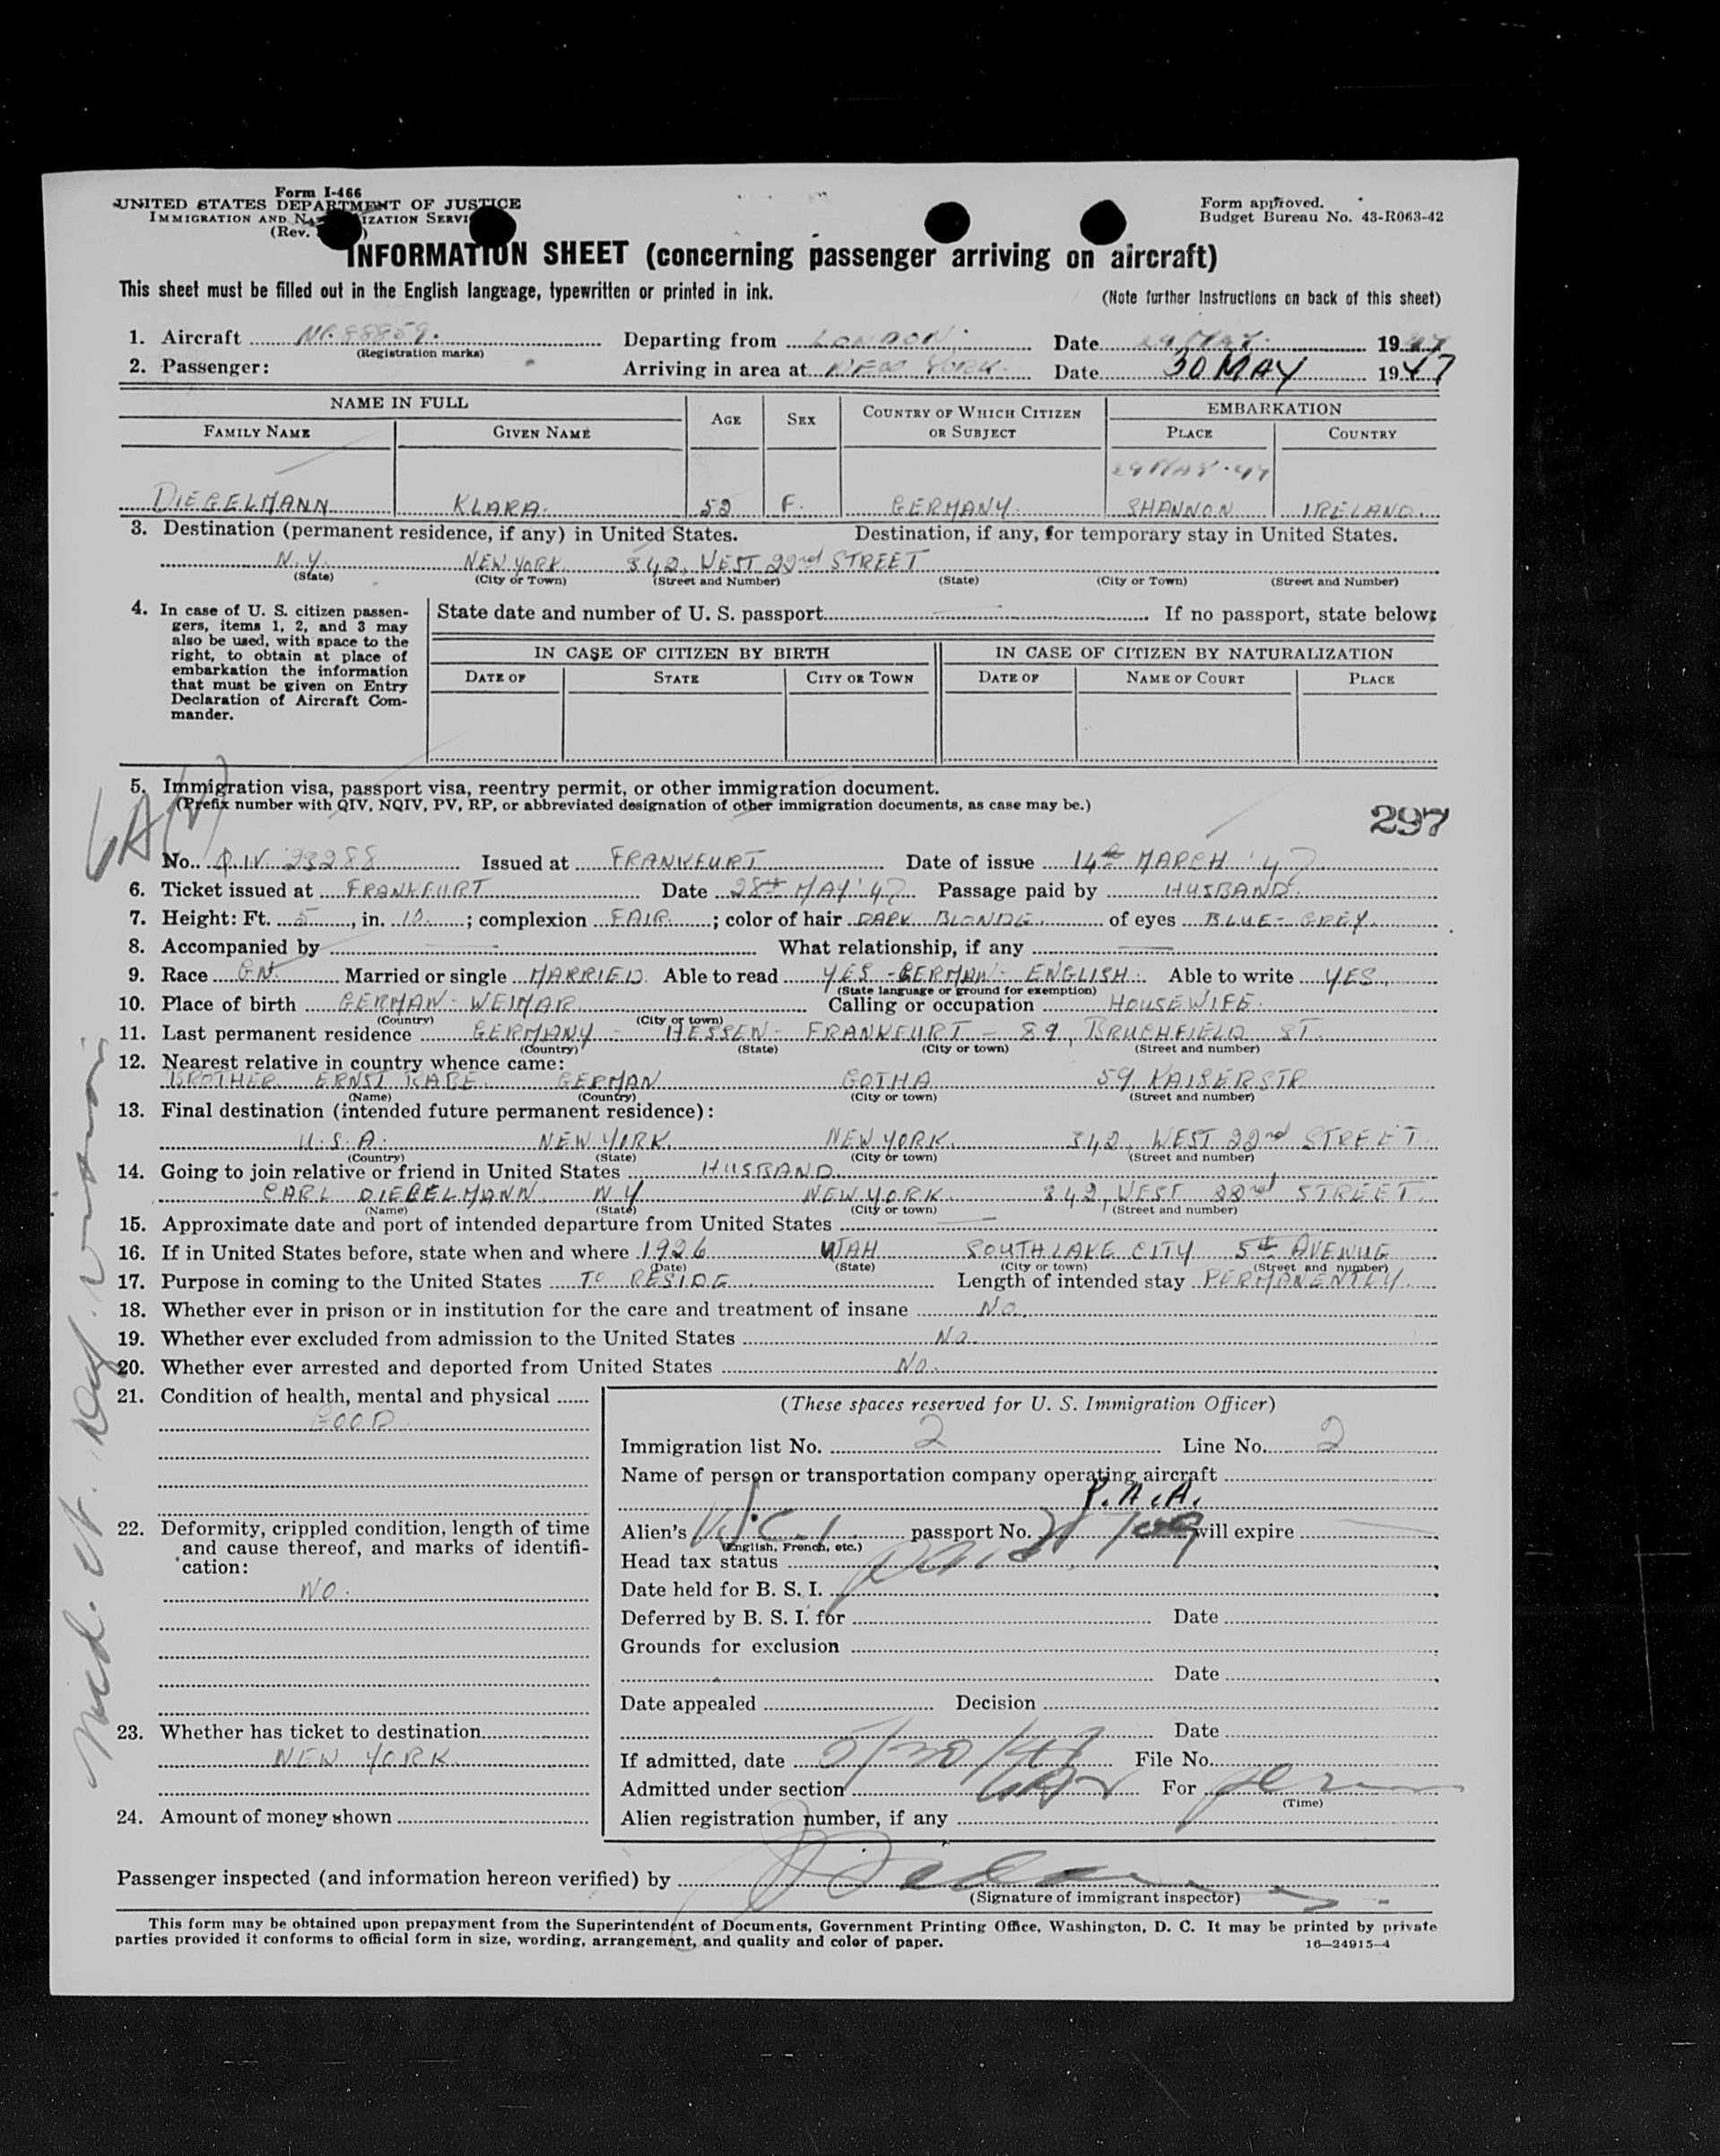 Form I-466
UNITED STATES DEPARTMENT OF JUSTICE
IMMIGRATION AND NATURALIZATION SERVICE
(Rev. )
Form approved.
Budget Bureau No. 43-R063-42
INFORMATION SHEET (concerning passenger arriving on aircraft)
This sheet must be filled out in the English language, typewritten or printed in ink.
(Note further instructions on back of this sheet)
1. Aircraft 88859. Departing from LONDON. Date 29 MAY. 1947
(Registration marks)
2. Passenger: Arriving in area at NEW YORK. Date 30 MAY 1947
NAME IN FULL AGE SEX COUNTRY OF WHICH CITIZEN OR SUBJECT EMBARKATION
FAMILY NAME GIVEN NAME PLACE COUNTRY
29 MAY · 47
DIEGELMANN KLARA. 52 F. GERMANY. SHANNON IRELAND.
3. Destination (permanent residence, if any) in United States. Destination, if any, for temporary stay in United States.
N.Y. NEW YORK. 342, WEST 22nd STREET
(State) (City or Town) (Street and Number) (State) (City or Town) (Street and Number)
4. In case of U. S. citizen passengers, items 1, 2, and 3 may also be used, with space to the right, to obtain at place of embarkation the information that must be given on Entry Declaration of Aircraft Commander.
State date and number of U. S. passport If no passport, state below:
IN CASE OF CITIZEN BY BIRTH IN CASE OF CITIZEN BY NATURALIZATION
DATE OF STATE CITY OR TOWN DATE OF NAME OF COURT PLACE
5. Immigration visa, passport visa, reentry permit, or other immigration document.
(Prefix number with QIV, NQIV, PV, RP, or abbreviated designation of other immigration documents, as case may be.)
297
No. Q.IV. 23288 Issued at FRANKFURT Date of issue 14th MARCH '47
6. Ticket issued at FRANKFURT Date 28th MAY '47 Passage paid by HUSBAND.
7. Height: Ft. 5, in. 10.; complexion FAIR.; color of hair DARK BLONDE. of eyes BLUE-GREY.
8. Accompanied by What relationship, if any
9. Race GN. Married or single MARRIED. Able to read YES - GERMAN - ENGLISH. Able to write YES.
(State language or ground for exemption)
10. Place of birth GERMAN - WEIMAR. Calling or occupation HOUSEWIFE.
(Country) (City or town)
11. Last permanent residence GERMANY - HESSEN - FRANKFURT - 89, BRUCHFIELD ST.
(Country) (State) (City or town) (Street and number)
12. Nearest relative in country whence came:
BROTHER ERNST RABE. GERMAN GOTHA 59 KAISERSTR
(Name) (Country) (City or town) (Street and number)
13. Final destination (intended future permanent residence):
U.S.A. NEW YORK. NEW YORK. 342, WEST 22nd STREET.
(Country) (State) (City or town) (Street and number)
14. Going to join relative or friend in United States HUSBAND.
CARL DIEGELMANN. N.Y NEW YORK 342, WEST 22nd STREET.
(Name) (State) (City or town) (Street and number)
15. Approximate date and port of intended departure from United States
16. If in United States before, state when and where 1926 UTAH SOUTH LAKE CITY 5th AVENUE
(Date) (State) (City or town) (Street and number)
17. Purpose in coming to the United States TO RESIDE. Length of intended stay PERMANENTLY.
18. Whether ever in prison or in institution for the care and treatment of insane NO.
19. Whether ever excluded from admission to the United States NO.
20. Whether ever arrested and deported from United States NO.
21. Condition of health, mental and physical
GOOD.
22. Deformity, crippled condition, length of time and cause thereof, and marks of identification:
NO.
23. Whether has ticket to destination
NEW YORK.
24. Amount of money shown
(These spaces reserved for U. S. Immigration Officer)
Immigration list No. 2 Line No. 2
Name of person or transportation company operating aircraft
P.A.A.
Alien's passport No. will expire
(English, French, etc.)
Head tax status paid
Date held for B. S. I.
Deferred by B. S. I. for Date
Grounds for exclusion
Date
Date appealed Decision
Date
If admitted, date 5/30/47 File No.
Admitted under section For perm
(Time)
Alien registration number, if any
Passenger inspected (and information hereon verified) by
(Signature of immigrant inspector)
This form may be obtained upon prepayment from the Superintendent of Documents, Government Printing Office, Washington, D. C. It may be printed by private
parties provided it conforms to official form in size, wording, arrangement, and quality and color of paper.
16—24915-4